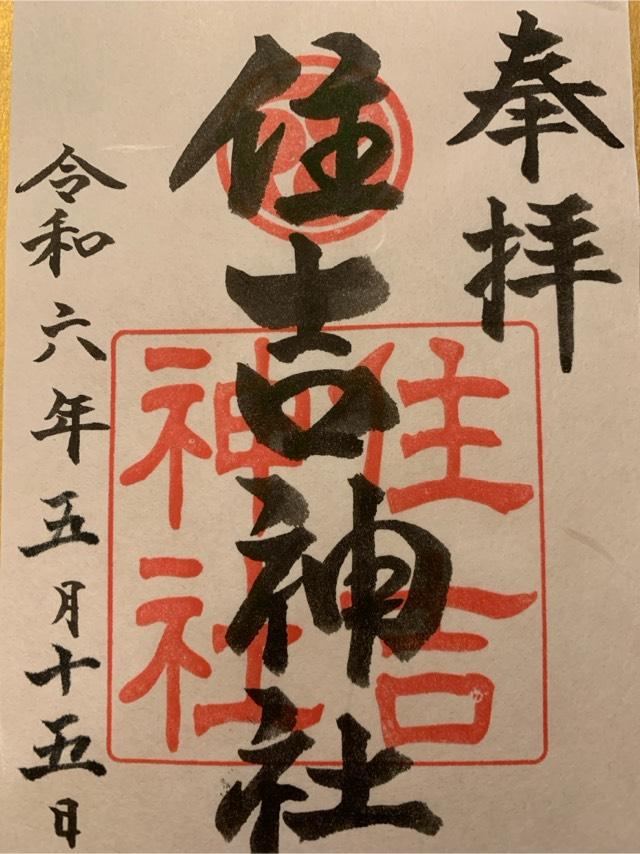 奉拝
住吉神社
住吉
神社
令和六年五月十五日